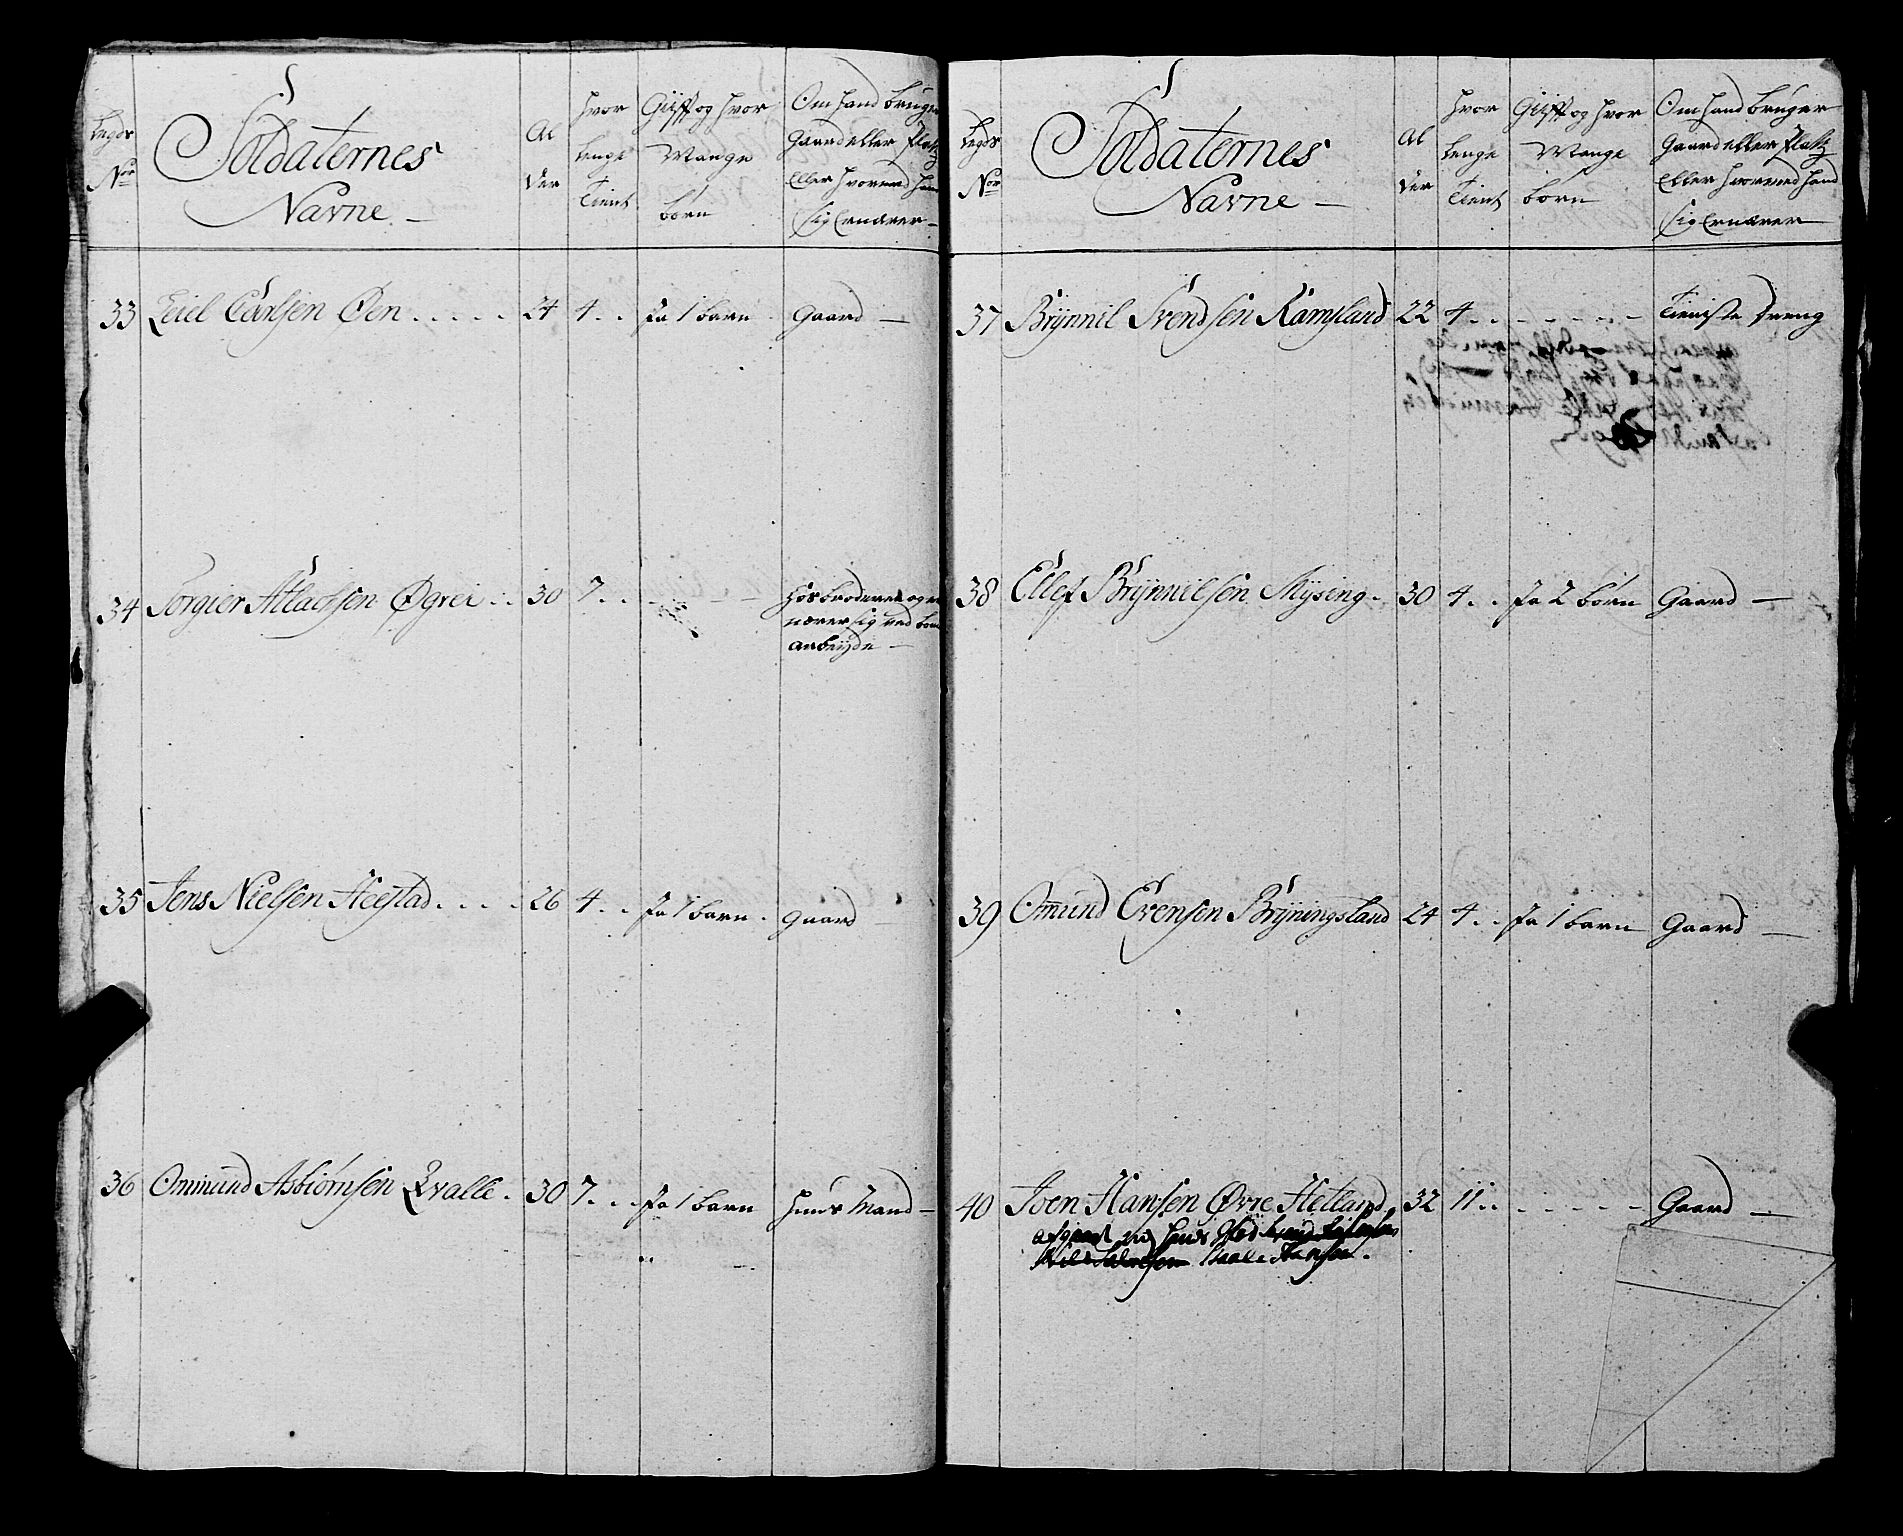 Legds
No
Soldaternes
Navne
Al
der
hvor
lenge
Tient
Gifft og hvor
Mange
børn
Om hand bruger
Gaard eller Platz
Eller hvormed hand
sig Ernærer
33 Eiel Carlsen Øen 24 4 Ja 1 barn Gaard
34 Torgier Atlachsen Øgrei 30 7
Hos broderen og er
nærer sig ved bonde
arbeyde
35 Jens Nielsen Heestad 26 4 Ja 1 barn Gaard
36 Ommund Asbiørnsen Qvalle 30 7 Ja 1 barn Huus Mand
Legds
No
Soldaternes
Navne
Al
der
hvor
lenge
Tient
Gifft og hvor
Mange
børn
Om hand bruger
Gaard eller Platz
Eller hvormed hand
sig Ernærer
37 Brÿnnil Svendsen Ramsland 22 4 Tieniste Dreng
38 Ellef Brÿnnilsen Mÿsing 30 4 Ja 2 børn Gaard
39 Omund Evensen Brÿningsland 24 4 Ja 1 barn Gaard
40 Joen Hansen Øvre Hetland 32 11 Gaard
afgaaet og hans Sted
Hansen